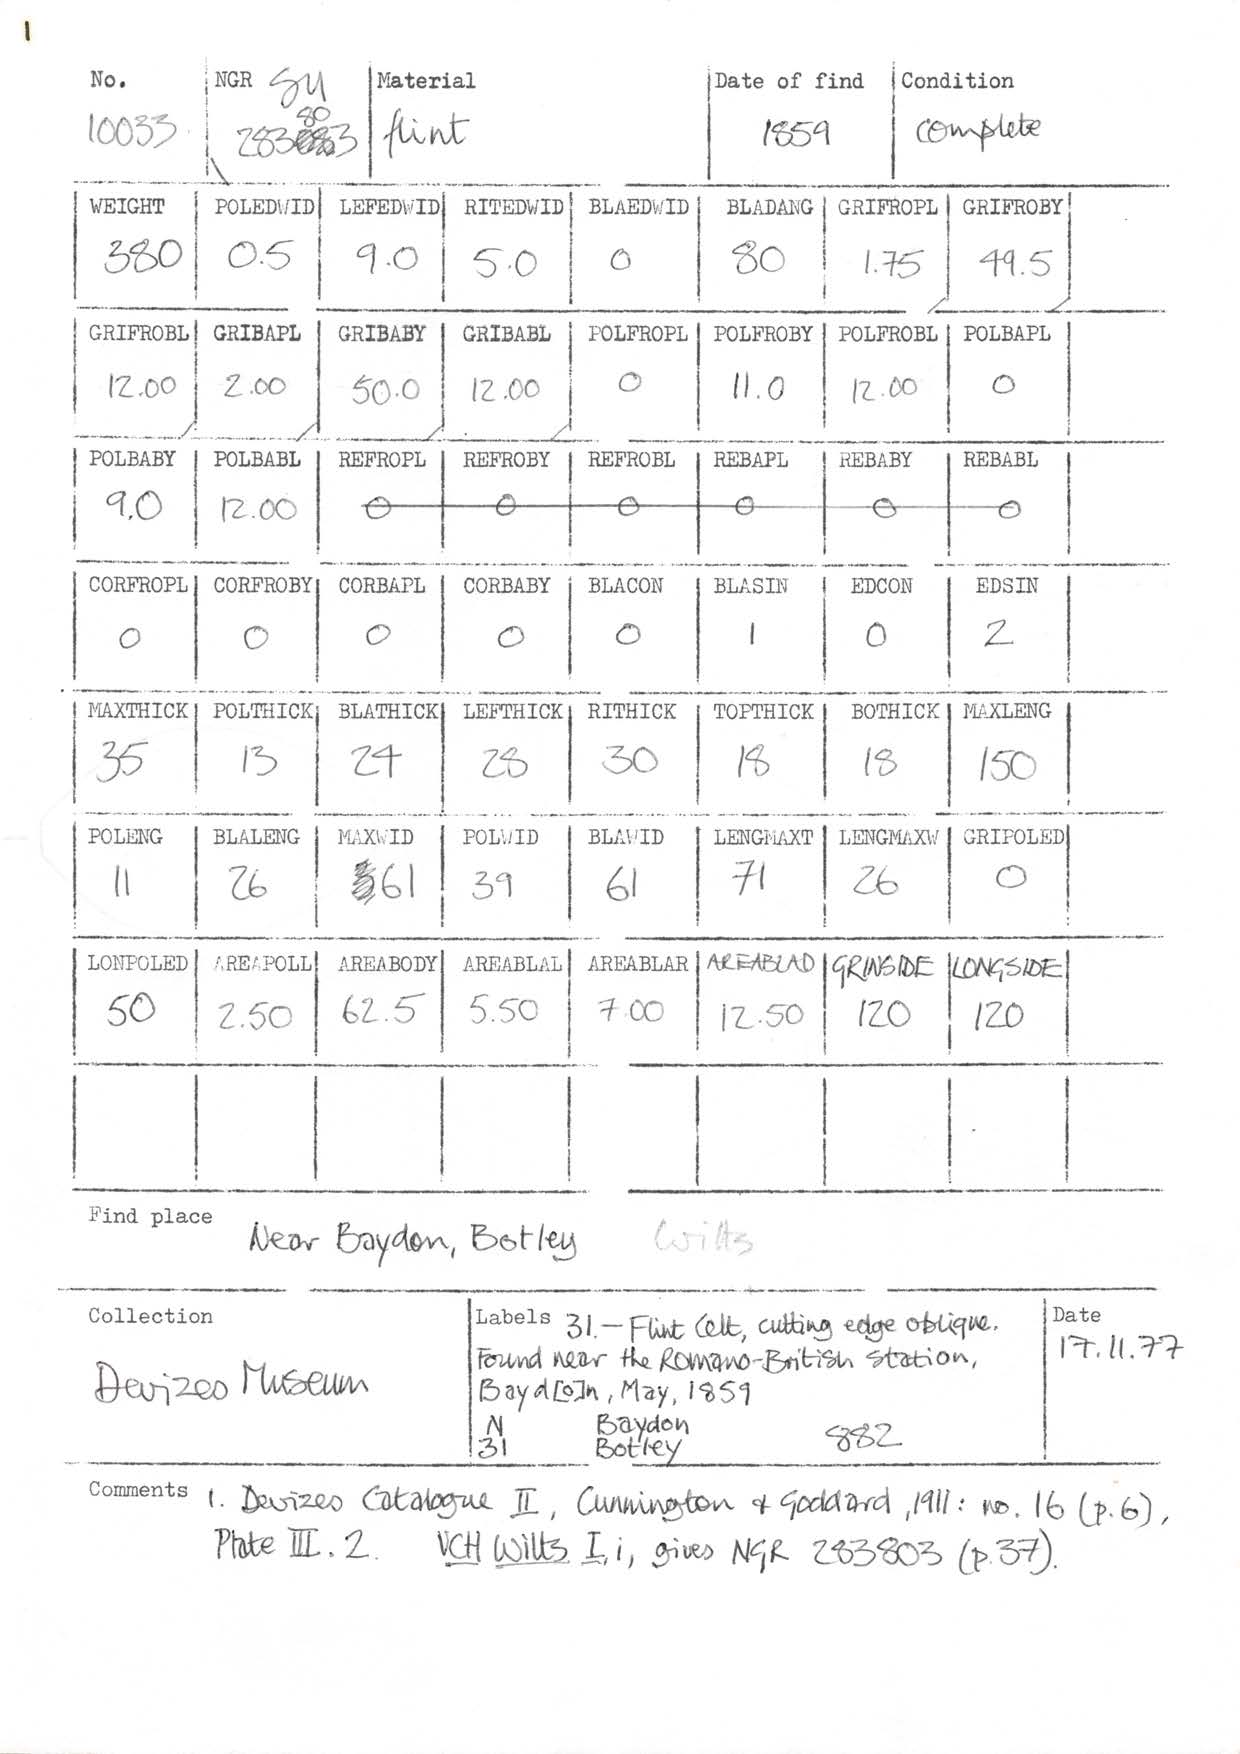 1
No. NGR SU Material Date of find Condition
80
10033 283 3 flint 1859 complete
WEIGHT POLEDWID LEFEDWID RITEDWID BLAEDWID BLADANG GRIFROPL GRIFROBY
380 0.5 9.0 5.0 0 80 1.75 49.5
GRIFROBL GRIBAPL GRIBABY GRIBABL POLFROPL POLFROBY POLFROBL POLBAPL
12.00 2.00 50.0 12.00 0 11.0 12.00 0
POLBABY POLBABL REFROPL REFROBY REFROBL REBAPL REBABY REBABL
9.0 12.00 0 0 0 0 0 0
CORFROPL CORFROBY CORBAPL CORBABY BLACON BLASIN EDCON EDSIN
0 0 0 0 0 1 0 2
MAXTHICK POLTHICK BLATHICK LEFTHICK RITHICK TOPTHICK BOTHICK MAXLENG
35 13 24 28 30 18 18 150
POLENG BLALENG MAXWID POLWID BLAWID LENGMAXT LENGMAXW GRIPOLED
11 26 61 39 61 71 26 0
LONPOLED AREAPOLL AREABODY AREABLAL AREABLAR AREABLAD GRINSIDE LONGSIDE
50 2.50 62.5 5.50 7.00 12.50 120 120
Find place Near Baydon, Botley Wilts
Collection Labels 31.— Flint Celt, cutting edge oblique. Date
Found near the Romano-British Station, 17.11.77
Devizes Museum Bayd[o]n, May, 1859
N Baydon 882
31 Botley
Comments 1. Devizes Catalogue II, Cunnington & Goddard, 1911: no. 16 (p.6),
Plate III. 2. VCH Wilts I, i, gives NGR 283803 (p.37).